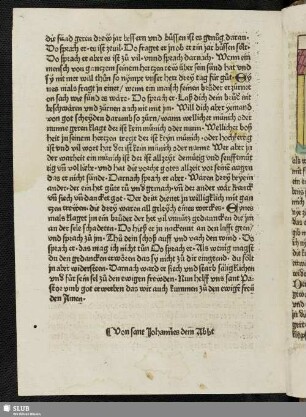 die sünd gerw drey jar bessern vnd büssen ist es genůg daran.
Do sprach er es ist zeuil. Do fraget er jn ob er ein jar büssen solt.
Do sprach er aber es ist zů vil. vnnd sprach darnach. Wenn ein
mensch von ganczem seinem herczen rew über sein sünd hat vnd
sy nit mer will thůn so nympt vnser herr drey tag für gůt. Eyns
mals fragt jn einer / wenn ein mensch seinen brůder
on sach wie sünd es wäre. Do sprach er. Laß dich dein brůd nit
beschwärn vnd zürnen auch nit mit jm. Will dich aber yemand
von got scheyden darumb so zürn / wann wellicher münch oder
nunne geren klaget der ist kein münch oder nunn. Wellicher boß
heit jn seinem herczen tregt der ist keyn münch oder hochfertig
ist vnd vil wort der ist kein münich oder nunne Wer aber in
der warheit ein münich ist der ist allczeyt demütig vnd senfftmüt
tig vnd vol liebe. vnd hat die vorcht gotes allczeit vor seinen augen
das er nicht sünde. Darnach sprach er aber. Wären drey beyein
ander. der ein het gůte rů vnd gemach. vnd der ander wär kranck
vnd siech vnd dancket got. Der drit dienet jn williglich mit gan
czen trewen. die drey wären all geleich eines werckes. Eynes
mals klaget jm ein brůder der het vil vnnücz gedancken die jm
an der sele schadeten. Do hieß er jn nackent an den lufft gen /
vnd sprach zů jm. Thů dein schoß auff vnd vach den wind. Do
sprach er das mag ich nicht tůn Do sprach er. Als wenig magst
du den gedancken erwören das sy nicht zů dir eingend. du solt
jn aber widersteen. Darnach ward er siech vnd starb säligklichen
vnd fůr sein sel zů den ewigen frewden. Nun helff vns Pa
stor vmb got erwerben das wir auch kummen zů den ewigen freü
den Amen.
Von sant Johannes dem Abbt